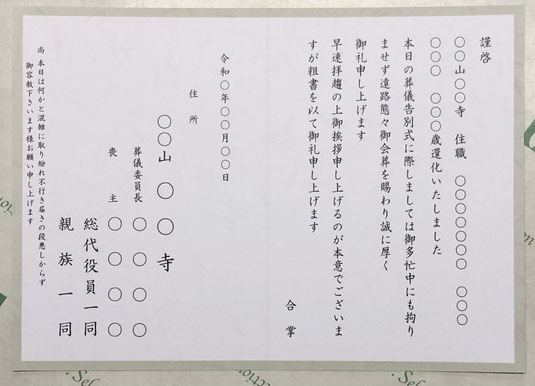 謹啓
〇〇山〇〇寺 住職 〇〇〇〇〇〇 〇〇〇
〇〇〇 〇〇〇歳還化いたしました
本日の葬儀告別式に際しましては御多忙中にも拘り
ませず遠路態々御会葬を賜わり誠に厚く
御礼申し上げます
早速拝趨の上御挨拶申し上げるのが本意でございま
すが粗書を以て御礼申し上げます
合掌
令和〇年〇〇月〇〇日
住所
〇〇山 〇〇寺
葬儀委員長 〇〇〇〇
喪主 〇〇〇〇
総代役員一同
親族一同
尚 本日は何かと混雑に取り紛れ不行き届きの段悪しからず
御容赦下さいます様お願い申し上げます